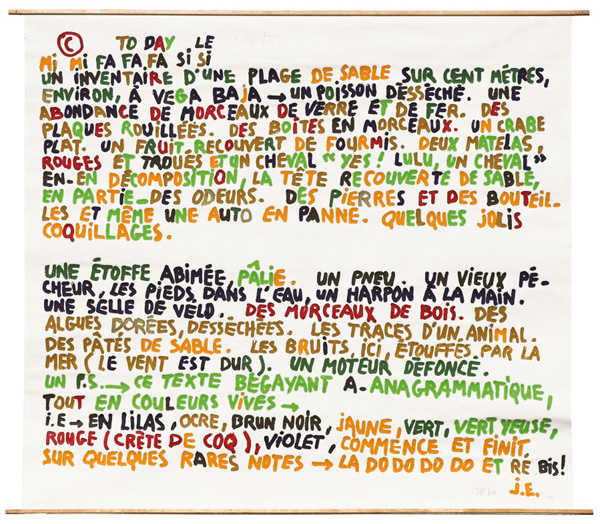 © TO DAY LE
Mi Mi FA FA FA Si Si
UN INVENTAIRE D'UNE PLAGE DE SABLE SUR CENT MÉTRES,
ENVIRON, À VEGA BAJA → UN POISSON DESSÉCHÉ. UNE
ABONDANCE DE MORCEAUX DE VERRE ET DE FER. DES
PLAQUES ROUILLÉES. DES BOITES EN MORCEAUX. UN CRABE
PLAT. UN FRUIT RECOUVERT DE FOURMIS. DEUX MATELAS,
ROUGES ET TROUÉS ET UN CHEVAL "YES! LULU, UN CHEVAL"
EN-EN DÉCOMPOSITION, LA TÉTE RECOUVERTE DE SABLE,
EN PARTIE_DES ODEURS. DES PIERRES ET DES BOUTEIL-
LES ET MÊME UNE AUTO EN PANNE. QUELQUES JOLIS
COQUILLAGES.
UNE ÉTOFFE ABIMÉE, PÂLIE. UN PNEU. UN VIEUX PÉ-
CHEUR, LES PIEDS DANS L'EAU, UN HARPON À LA MAIN.
UNE SELLE DE VELO. DES MORCEAUX DE BOIS. DES
ALGUES DORÉES, DESSÉCHÉES. LES TRACES D'UN ANIMAL.
DES PÂTÉS DE SABLE. LES BRUITS, ICI, ÉTOUFFÉS PAR LA
MER (LE VENT EST DUR). UN MOTEUR DÉFONCÉ.
UN P.S. → CE TEXTE BÉGAYANT A-ANAGRAMMATIQUE,
TOUT EN COULEURS VIVES →
i.E → EN LILAS, OCRE, BRUN NOIR, JAUNE, VERT, VERT YEUSE,
ROUGE (CRÈTE DE COQ), VIOLET, COMMENCE ET FINIT
SUR QUELQUES RARES NOTES → LA DO DO DO DO ET RÉ BIS!
J.E.